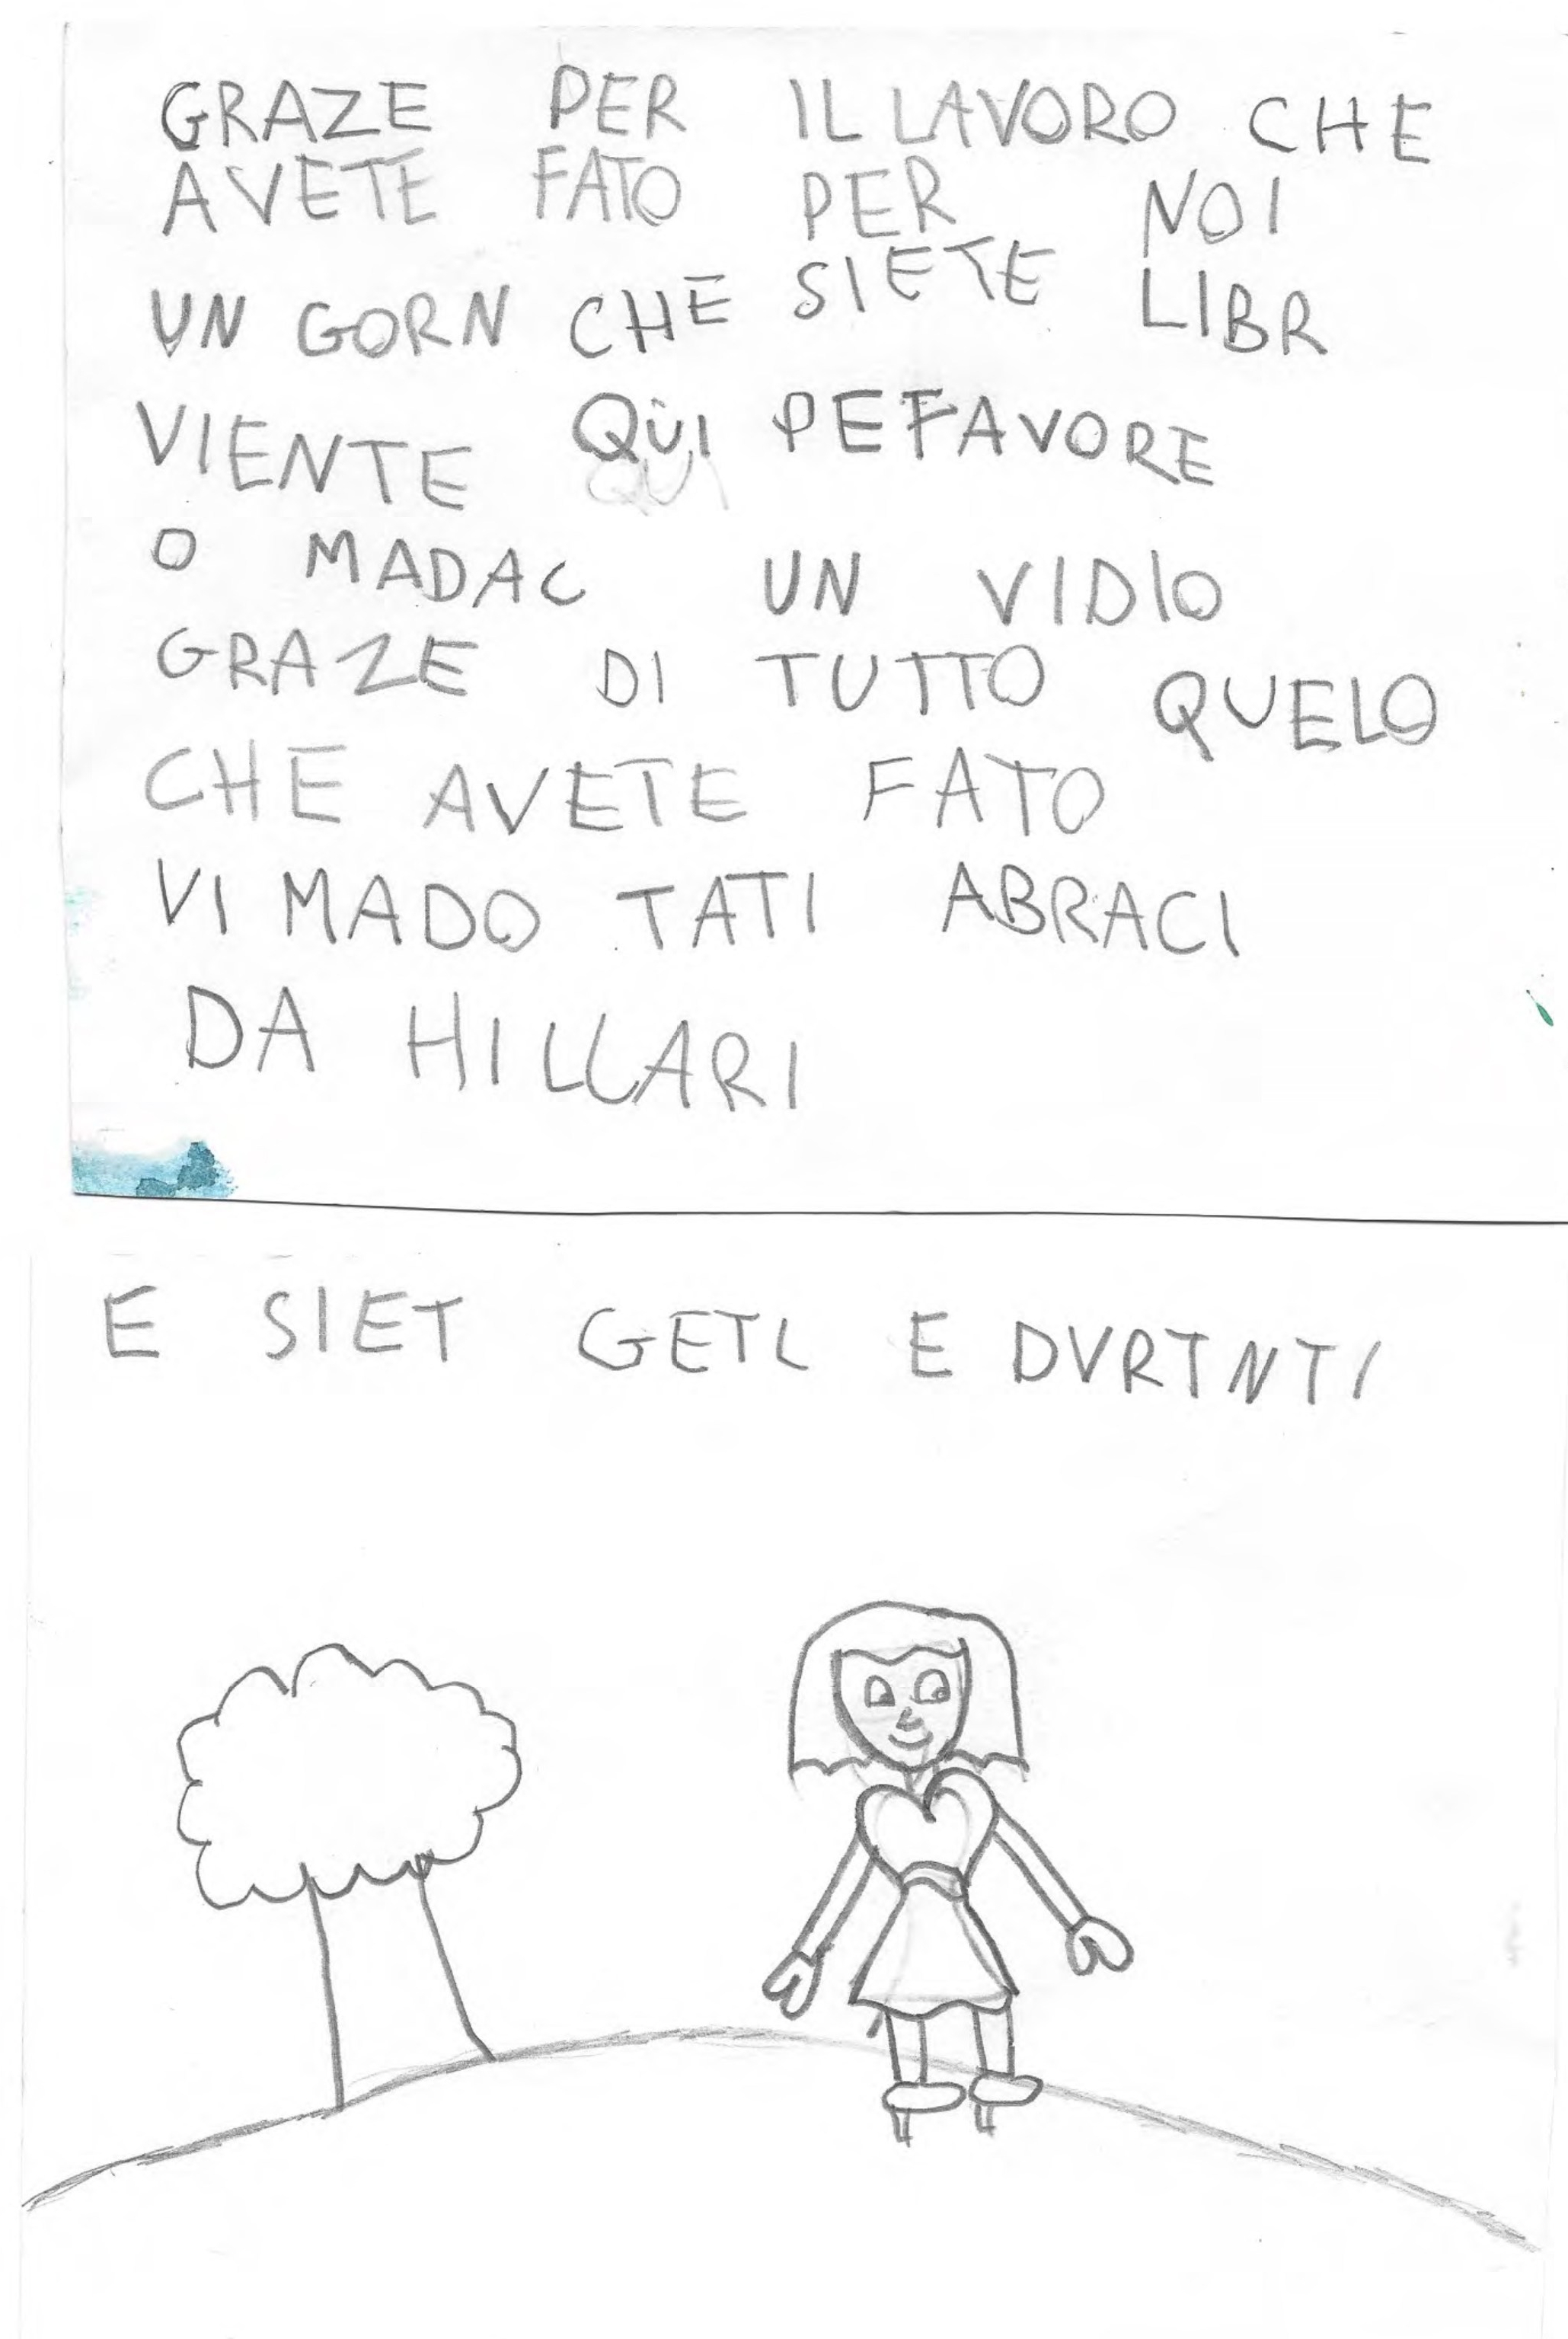 GRAZE PER IL LAVORO CHE
AVETE FATO PER NOI
UN GORN CHE SIETE LIBR
VIENTE QUI PEFAVORE
QUI
O MADAC UN VIDIO
GRAZE DI TUTTO QUELO
CHE AVETE FATO
VI MADO TATI ABRACI
DA HILLARI
E SIET GETL E DVRTNTI